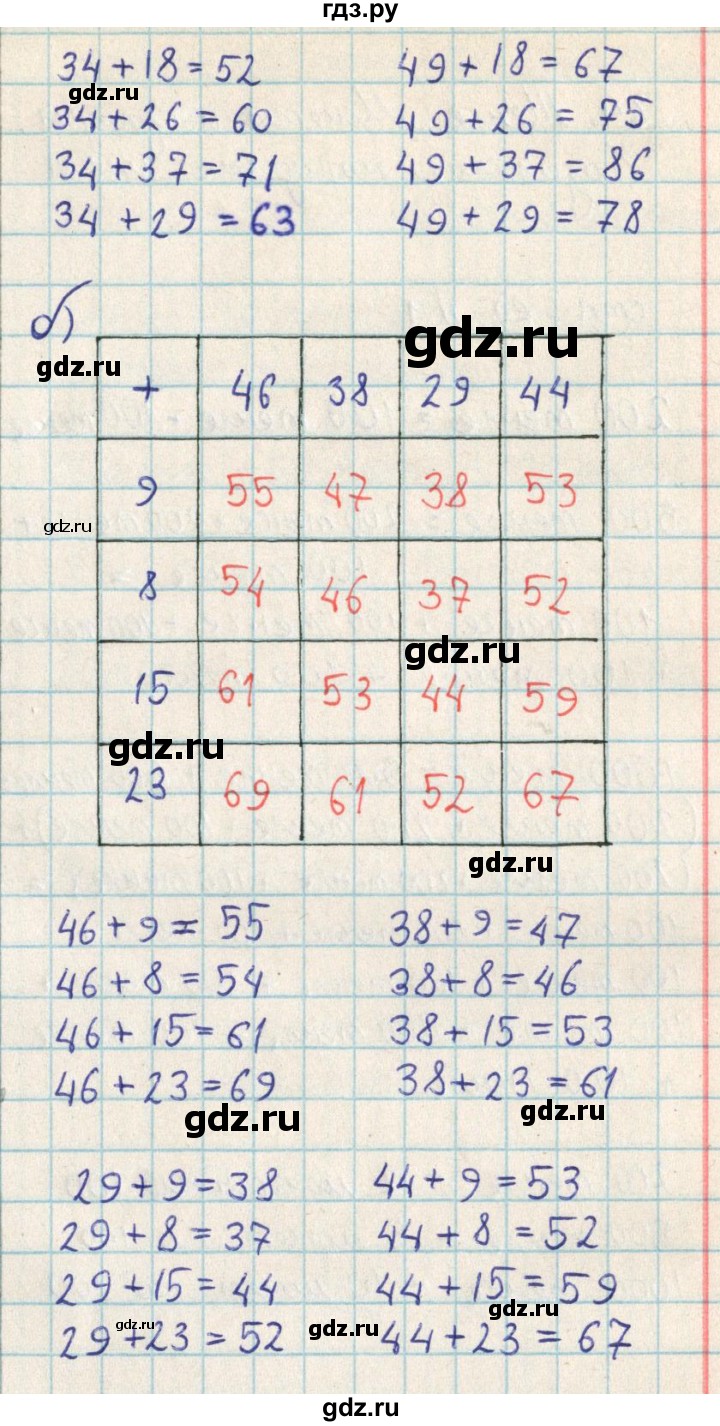 гдз.ру
34+18=52 49+18=67
gdz.ru
34+26=60 49+26=75
34+37=71 49+37=86
34+29=63 49+29=78
б)
gdz.ru
gdz.ru
+ 46 38 29 44
9 55 47 38 53
gdz.ru
8 54 46 37 52
gdz.ru
15 61 53 44 59
gdz.ru
23 69 61 52 67
gdz.ru
46+9=55 38+9=47
46+8=54 38+8=46
46+15=61 38+15=53
46+23=69 38+23=61
gdz.ru gdz.ru
29+9=38 44+9=53
29+8=37 44+8=52
29+15=44 44+15=59
gdz.ru
29+23=52 44+23=67
gdz.ru gdz.ru
gdz.ru